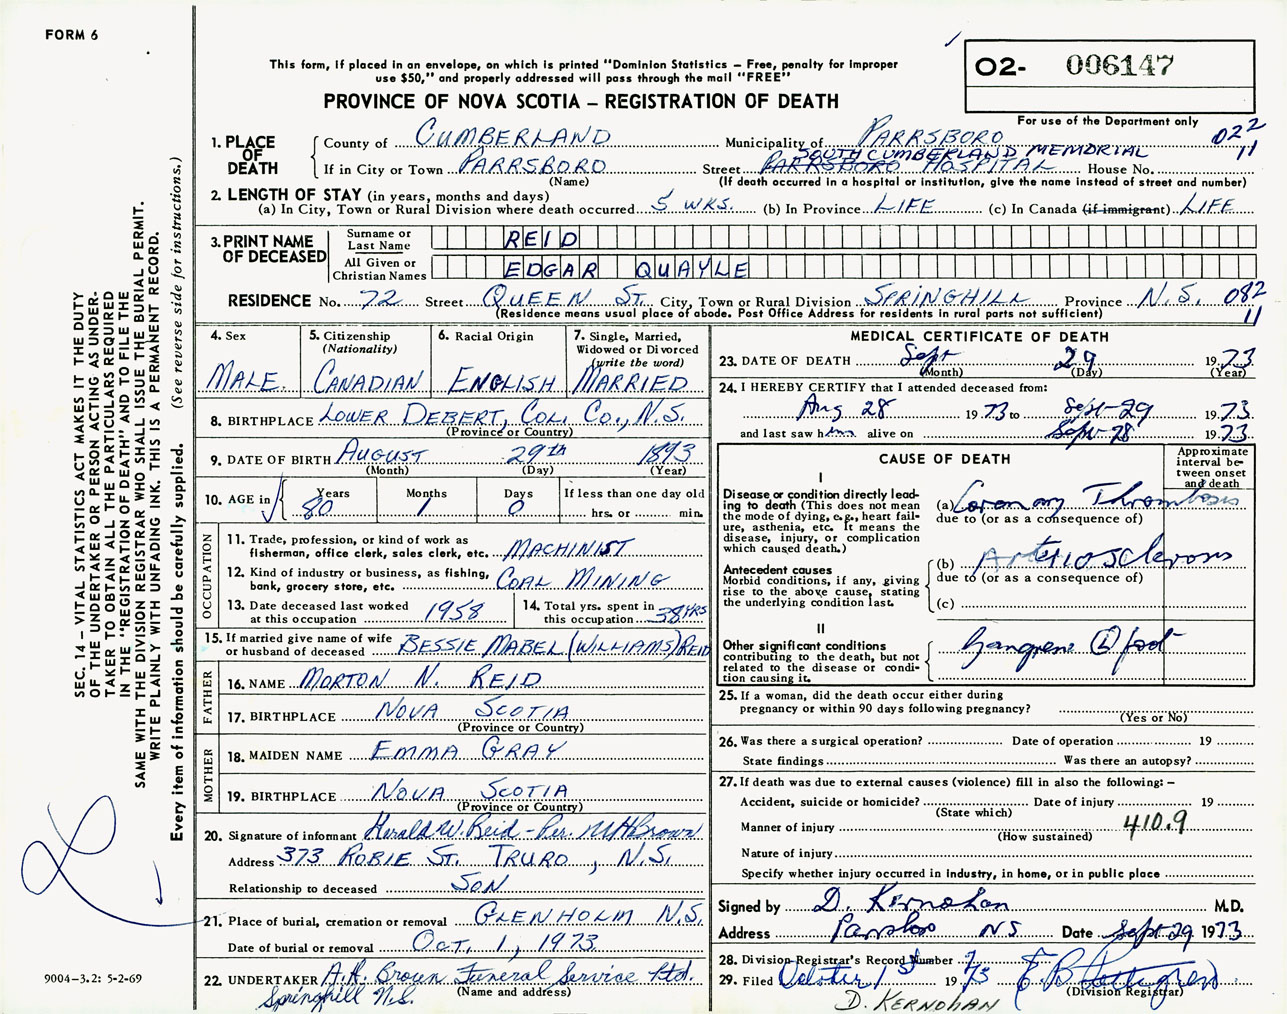 FORM 6
This form, if placed in an envelope, on which is printed "Dominion Statistics – Free, penalty for improper
use $50," and properly addressed will pass through the mail "FREE"
PROVINCE OF NOVA SCOTIA – REGISTRATION OF DEATH
02- 006147
For use of the Department only
022
11
1. PLACE OF DEATH
County of CUMBERLAND Municipality of PARRSBORO
If in City or Town PARRSBORO Street SOUTH CUMBERLAND MEMORIAL PARRSBORO HOSPITAL House No.
(Name) (If death occurred in a hospital or institution, give the name instead of street and number)
2. LENGTH OF STAY (in years, months and days)
(a) In City, Town or Rural Division where death occurred 5 WKS. (b) In Province LIFE (c) In Canada (if immigrant) LIFE
3. PRINT NAME OF DECEASED
Surname or Last Name REID
All Given or Christian Names EDGAR QUAYLE
RESIDENCE No. 72 Street QUEEN ST. City, Town or Rural Division SPRINGHILL Province N.S. 082
11
(Residence means usual place of abode. Post Office Address for residents in rural parts not sufficient)
4. Sex
MALE.
5. Citizenship
(Nationality)
CANADIAN
6. Racial Origin
ENGLISH
7. Single, Married,
Widowed or Divorced
(write the word)
MARRIED
8. BIRTHPLACE LOWER DEBERT, COL. CO., N.S.
(Province or Country)
9. DATE OF BIRTH AUGUST 29th 1893
(Month) (Day) (Year)
10. AGE in
Years Months Days If less than one day old
80 1 0 hrs. or min.
OCCUPATION
11. Trade, profession, or kind of work as
fisherman, office clerk, sales clerk, etc. MACHINIST
12. Kind of industry or business, as fishing,
bank, grocery store, etc. COAL MINING
13. Date deceased last worked
at this occupation 1958
14. Total yrs. spent in
this occupation 38 YRS
15. If married give name of wife
or husband of deceased BESSIE MABEL (WILLIAMS) REID
FATHER
16. NAME MORTON N. REID
17. BIRTHPLACE NOVA SCOTIA
(Province or Country)
MOTHER
18. MAIDEN NAME EMMA GRAY
19. BIRTHPLACE NOVA SCOTIA
(Province or Country)
20. Signature of informant Harald W. Reid - Per. M H Brown
Address 373 ROBIE ST. TRURO, N.S.
Relationship to deceased SON
21. Place of burial, cremation or removal GLENHOLM N.S.
Date of burial or removal OCT. 1, 1973
22. UNDERTAKER A.H. Brown Funeral Service Ltd.
(Name and address)
Springhill N.S.
MEDICAL CERTIFICATE OF DEATH
23. DATE OF DEATH Sept 29 1973
(Month) (Day) (Year)
24. I HEREBY CERTIFY that I attended deceased from:
Aug 28 1973 to Sept-29 1973
and last saw him alive on Sept-28 1973
CAUSE OF DEATH
Approximate
interval be-
tween onset
and death
I
Disease or condition directly lead-
ing to death (This does not mean
the mode of dying, e.g., heart fail-
ure, asthenia, etc. It means the
disease, injury, or complication
which caused death.)
(a) Coronary Thrombosis
due to (or as a consequence of)
Antecedent causes
Morbid conditions, if any, giving
rise to the above cause, stating
the underlying condition last.
(b) Arteriosclerosis
due to (or as a consequence of)
(c)
II
Other significant conditions
contributing to the death, but not
related to the disease or condi-
tion causing it.
Gangrene (L) foot
25. If a woman, did the death occur either during
pregnancy or within 90 days following pregnancy?
(Yes or No)
26. Was there a surgical operation? Date of operation 19
State findings Was there an autopsy?
27. If death was due to external causes (violence) fill in also the following: –
Accident, suicide or homicide? Date of injury 19
(State which)
Manner of injury 410.9
(How sustained)
Nature of injury
Specify whether injury occurred in industry, in home, or in public place
Signed by D. Kernohan M.D.
Address Parrsboro NS Date Sept 29 1973
28. Division Registrar's Record Number 7
29. Filed October 1st 1973
(Division Registrar)
D. KERNOHAN
SEC. 14 – VITAL STATISTICS ACT MAKES IT THE DUTY
OF THE UNDERTAKER OR PERSON ACTING AS UNDER-
TAKER TO OBTAIN ALL THE PARTICULARS REQUIRED
IN THE "REGISTRATION OF DEATH" AND TO FILE THE
SAME WITH THE DIVISION REGISTRAR WHO SHALL ISSUE THE BURIAL PERMIT.
WRITE PLAINLY WITH UNFADING INK. THIS IS A PERMANENT RECORD.
Every item of information should be carefully supplied. (See reverse side for instructions.)
9004–3.2: 5-2-69